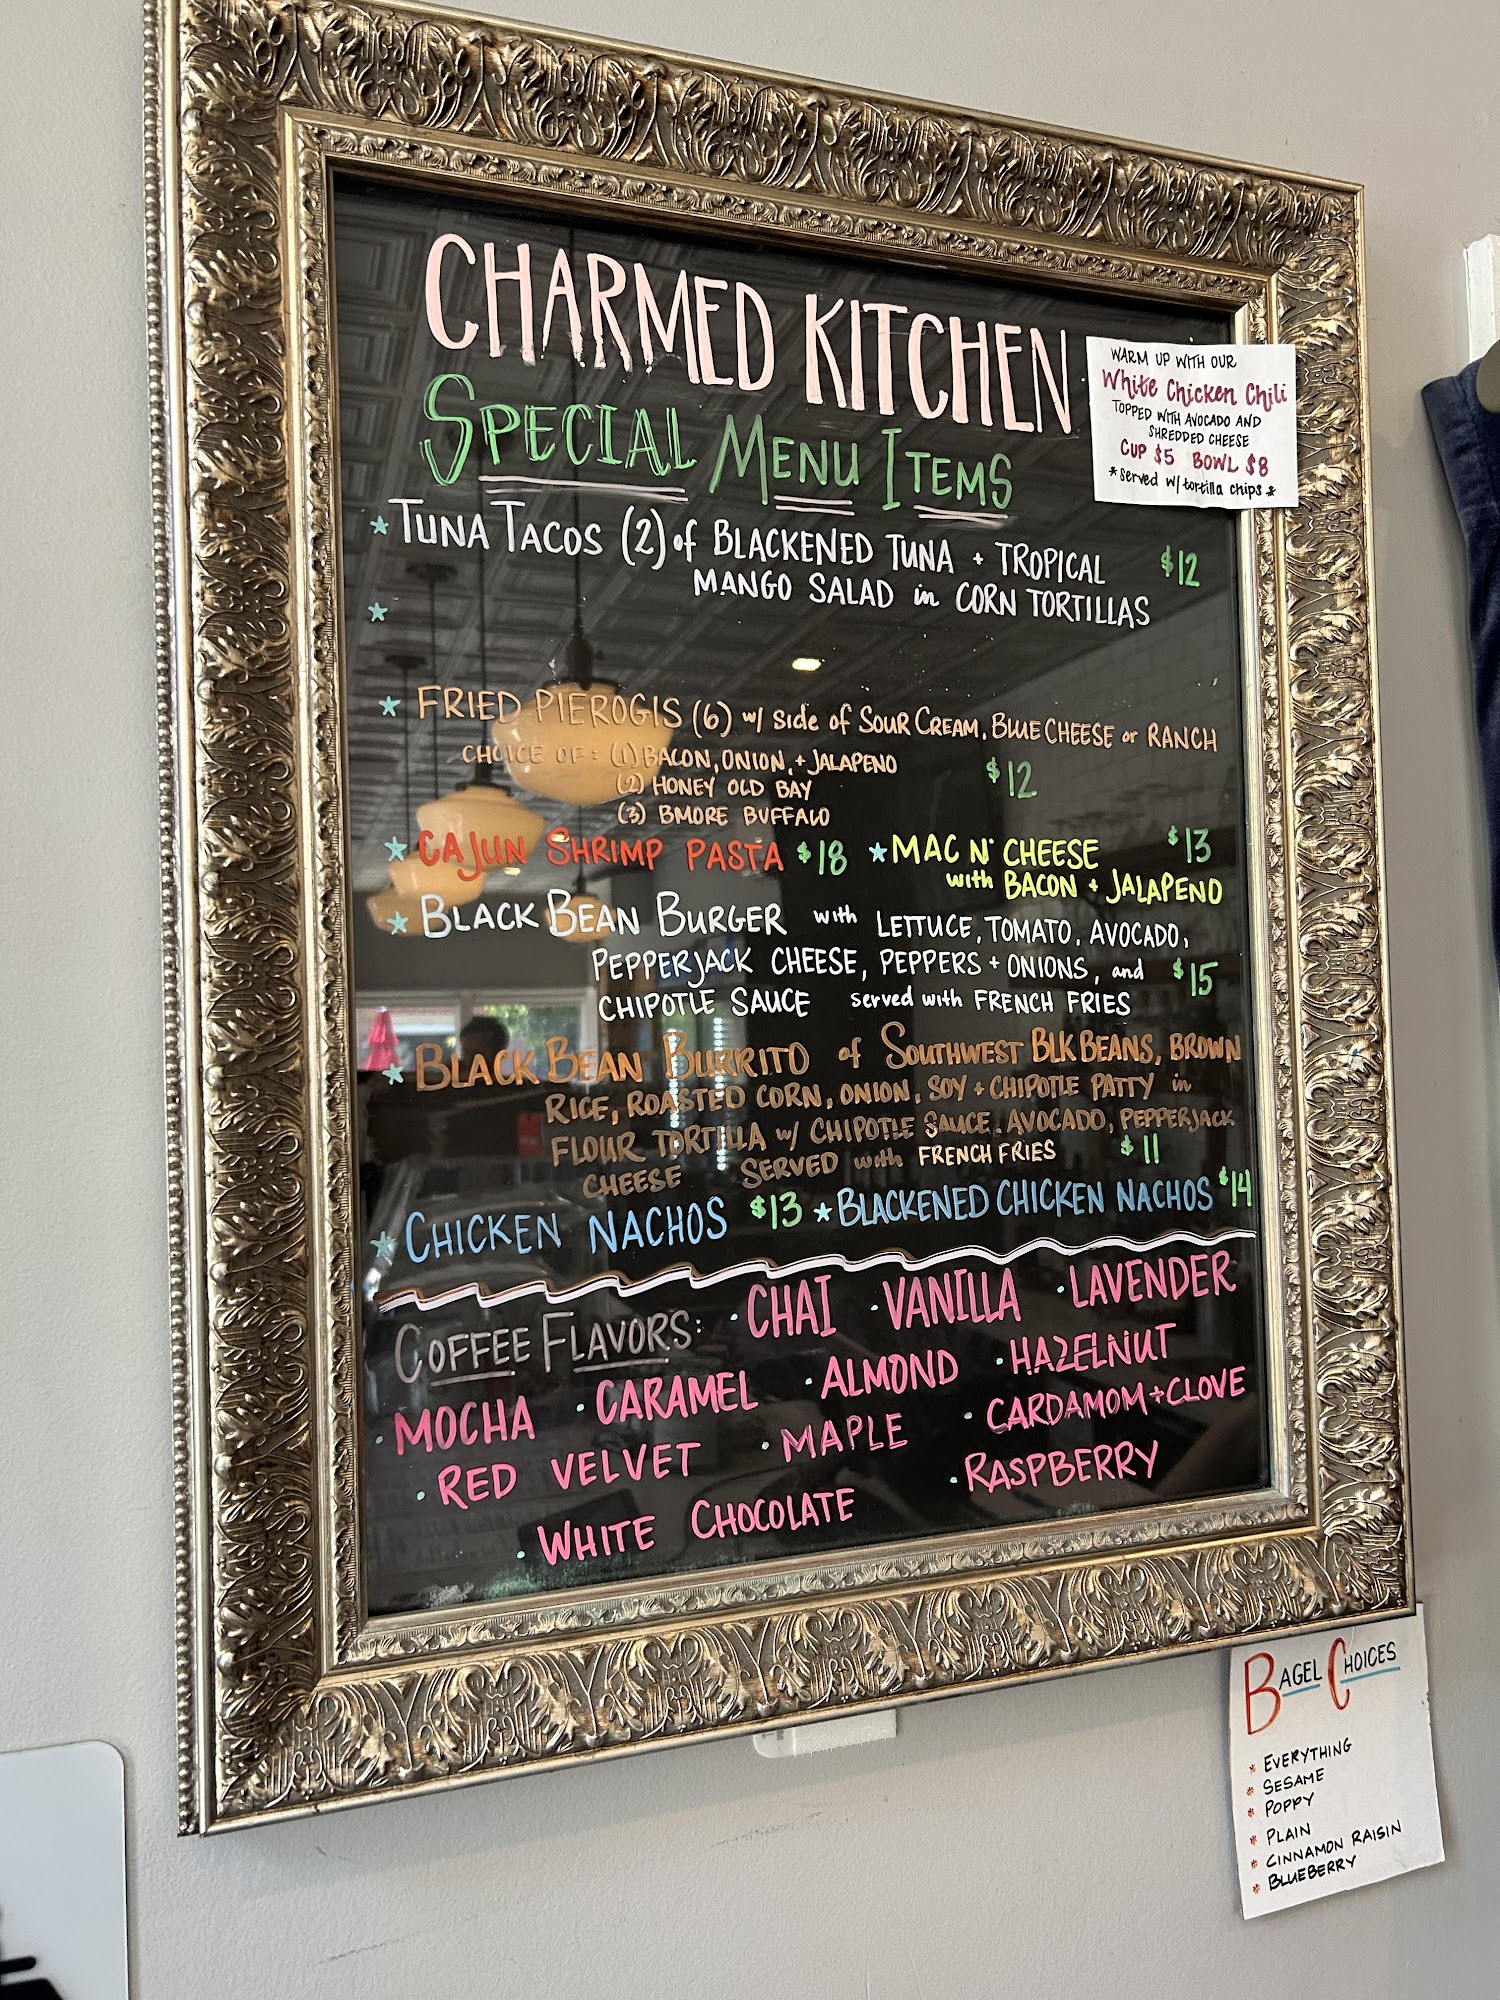 CHARMED KITCHEN
SPECIAL MENU ITEMS
WARM UP WITH OUR
White Chicken Chili
TOPPED WITH AVOCADO AND
SHREDDED CHEESE
CUP $5 BOWL $8
*served w/ tortilla chips*
TUNA TACOS (2) of BLACKENED TUNA + TROPICAL $12
MANGO SALAD in CORN TORTILLAS
FRIED PIEROGIS (6) w/ side of SOUR CREAM, BLUE CHEESE or RANCH
CHOICE OF: (1) BACON, ONION, + JALAPENO $12
(2) HONEY OLD BAY
(3) BMORE BUFFALO
CAJUN SHRIMP PASTA $18 MAC N' CHEESE $13
with BACON + JALAPENO
BLACK BEAN BURGER with LETTUCE, TOMATO, AVOCADO,
PEPPERJACK CHEESE, PEPPERS + ONIONS, and $15
CHIPOTLE SAUCE served with FRENCH FRIES
BLACK BEAN BURRITO of SOUTHWEST BLK BEANS, BROWN
RICE, ROASTED CORN, ONION, SOY + CHIPOTLE PATTY in
FLOUR TORTILLA w/ CHIPOTLE SAUCE, AVOCADO, PEPPERJACK
CHEESE SERVED with FRENCH FRIES $11
CHICKEN NACHOS $13 BLACKENED CHICKEN NACHOS $14
COFFEE FLAVORS: · CHAI · VANILLA · LAVENDER
· MOCHA · CARAMEL · ALMOND · HAZELNUT
· RED VELVET · MAPLE · CARDAMOM + CLOVE
· WHITE CHOCOLATE · RASPBERRY
BAGEL CHOICES
* EVERYTHING
* SESAME
* POPPY
* PLAIN
* CINNAMON RAISIN
* BLUEBERRY